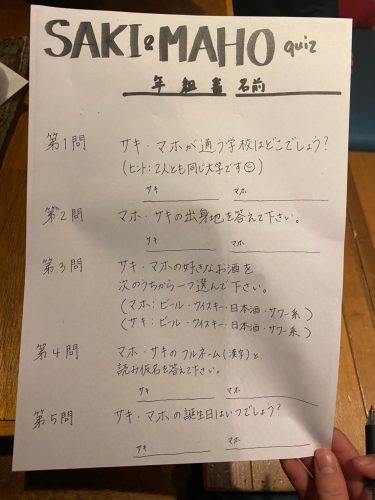 SAKI & MAHO quiz
年 組 番 名前
第1問 サキ・マホが通う学校はどこでしょう?
(ヒント:2人とも同じ大学です☺)
サキ マホ
第2問 マホ・サキの出身地を答えて下さい。
サキ マホ
第3問 サキ・マホの好きなお酒を
次のうちから一つ選んで下さい。
(マホ:ビール・ウイスキー・日本酒・サワー系)
(サキ:ビール・ウイスキー・日本酒・サワー系)
第4問 マホ・サキのフルネーム(漢字)と、
読み仮名を答えて下さい。
サキ マホ
第5問 サキ・マホの誕生日はいつでしょう?
サキ マホ